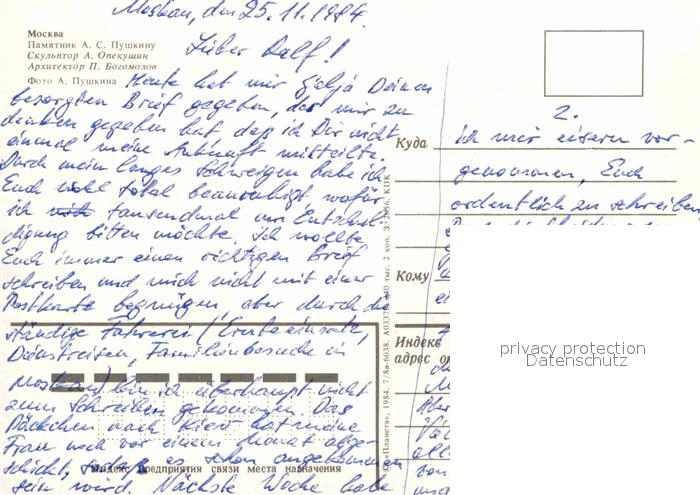 Moskau, den 25.11.1984.
Москва
Памятник А. С. Пушкину
Скульптор А. Опекушин
Архитектор П. Богомолов
Фото А. Пушкина
Lieber Ralf!
Heute hat mir Galja Deinen
besorgten Brief gegeben, der mir zu
denken gegeben hat, daß ich Dir nicht
einmal meine Ankunft mitteilte.
Durch mein langes Schweigen habe ich
Euch total beunruhigt, wofür
ich tausendmal um Entschul-
digung bitten möchte. Ich wollte
Euch immer einen richtigen Brief
schreiben und mich nicht mit einer
Postkarte begnügen, aber durch die
ständige Fahrerei (Ernteeinsatz,
Dienstreisen, Familienbesuche in
Moskau) bin ich überhaupt nicht
zum Schreiben gekommen. Das
Päckchen nach Kiew hat meine
Frau noch vor einem Monat abge-
schickt, sodaß es schon angekommen
sein wird. Nächste Woche habe
Индекс предприятия связи места назначения
«Планета», 1984. 7/8в-6038. А03378. 440 тыс. 2 коп. З. 2656. КПК
2.
Куда
ich mir eisern vor-
genommen, Euch
ordentlich zu schreiben
Кому
Индекс
адрес
privacy protection
Datenschutz